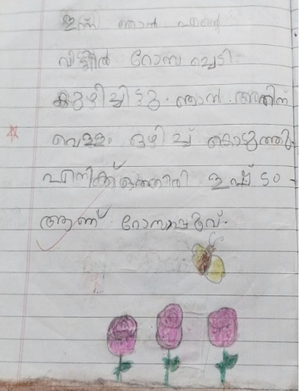 ഇന്ന് ഞാൻ എന്റെ
വീട്ടിൽ റോസാ ച്ചെടി
കുഴിച്ചിട്ടു. ഞാൻ അതിന്
വെള്ളം ഒഴിച്ച് കൊടുത്തു.
എനിക്ക് ഒത്തിരി ഇഷ്ടം-
ആണ് റോസാപ്പൂവ്.